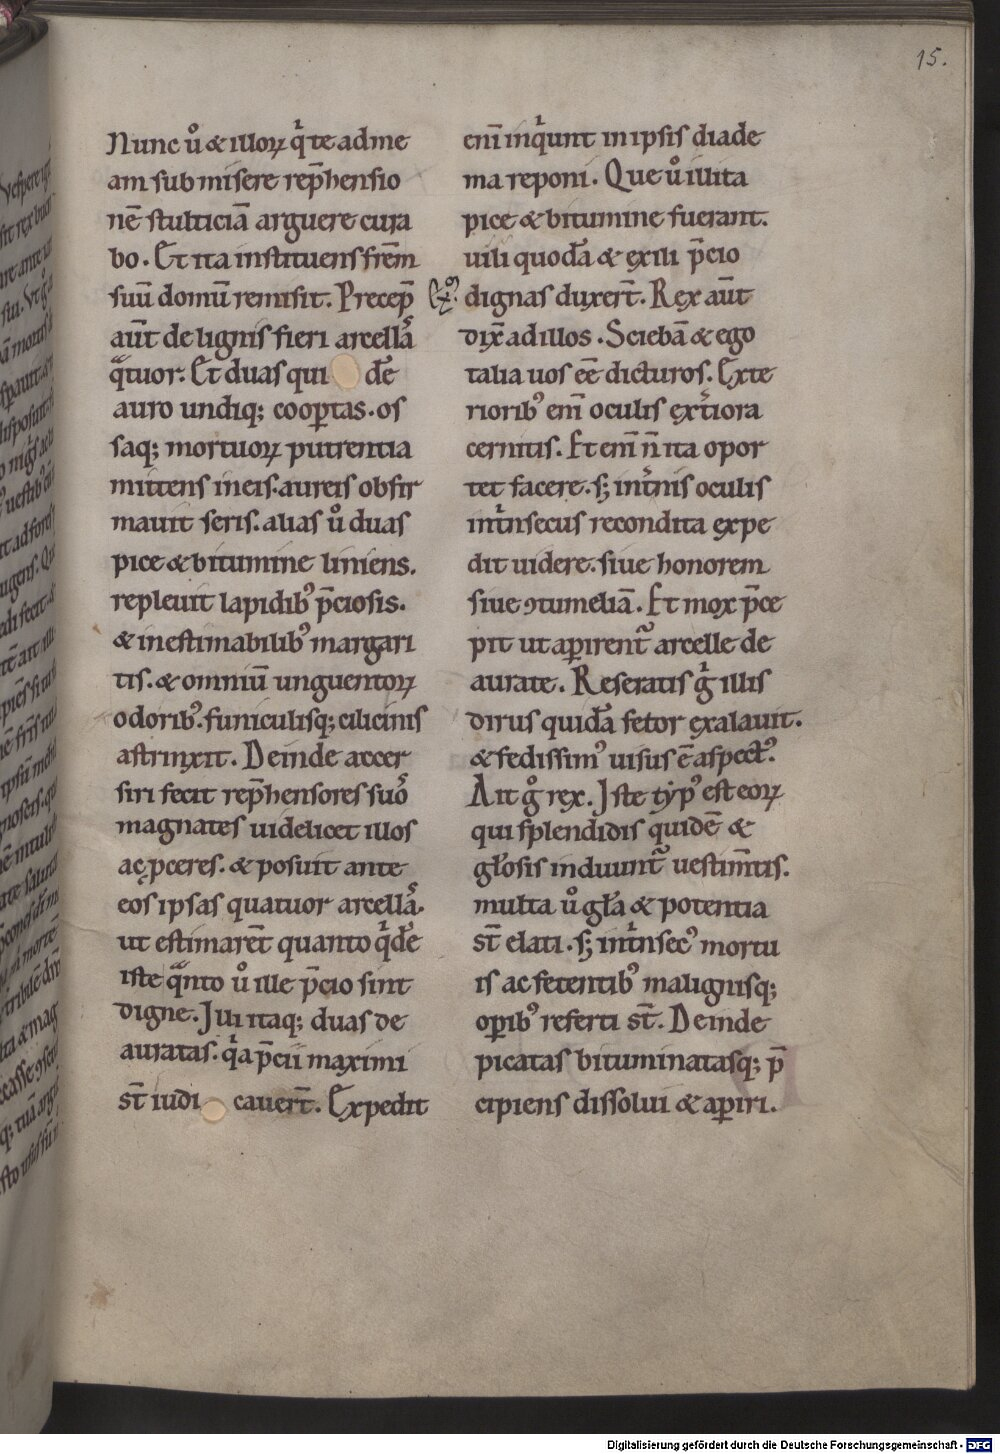 15.
Nunc ů & illoꝝ q̍ te ad me
am sub misere rep̄hensio
nē stulticiā arguere cura
bo. Et ita instituens fr̄em
suū domū remisit. Precep̄
aūt de lignis fieri arcellaˢ
qᷓtuor. Et duas qui dē
auro undiq; cooꝑtas. os
saq; mortuoꝝ putrentia
mittens in eis. aureis obfir
mauit seris. alias ů duas
pice & bitumine liniens.
repleuit lapidibꝰ p̄ciosis.
& inestimabilibꝰ margari
tis. & omniū unguentoꝝ
odoribꝰ. funiculisq; cilicinis
astrinxit. Deinde accer
siri fecit rep̄hensores suoˢ
magnates uidelicet illos
ac ꝓceres. & posuit ante
eos ipsas quatuor arcellaˢ.
ut estimarēt quanto q̍dē
iste qᷓnto ů ille p̄cio sint
digne. Illi itaq; duas de
auratas. q̍a p̄cii maximi
st̄ iudi cauer̄t. Expedit
eni̅ inq̍unt in ipsis diade
ma reponi. Que ů illita
pice & bitumine fuerant.
uili quodā & exili p̄cio
dignas duxer̄t. Rex aūt
dix̄ ad illos. Sciebā & ego
talia uos eē dicturos. Exte
rioribꝰ eni̅ oculis ext̍iora
cernitis. Et eni̅ n̄ ita opor
tet facere. s; int̍nis oculis
int̍nsecus recondita expe
dit uidere. siue honorem
siue ꝯtumeliā. Et mox p̄ce
pit ut aꝑirent᷑ arcelle de
aurate. Reseratis g̍ illis
dirus quidā fetor exalauit.
& fedissimꝰ uisus ē aspectꝰ.
Ait g̊ rex. Iste typꝰ est eoꝝ
qui splendidis quidē &
gl̄osis induunt᷑ uestim̄tis.
multa ů gl̄a & potentia
st̄ elati. s; int̍nsecꝰ mortu
is ac fetentibꝰ malignisq;
oꝑibꝰ referti st̄. Deinde
picatas bituminatasq; p̄
cipiens dissolui & aꝑiri.
Digitalisierung gefördert durch die Deutsche Forschungsgemeinschaft - DFG